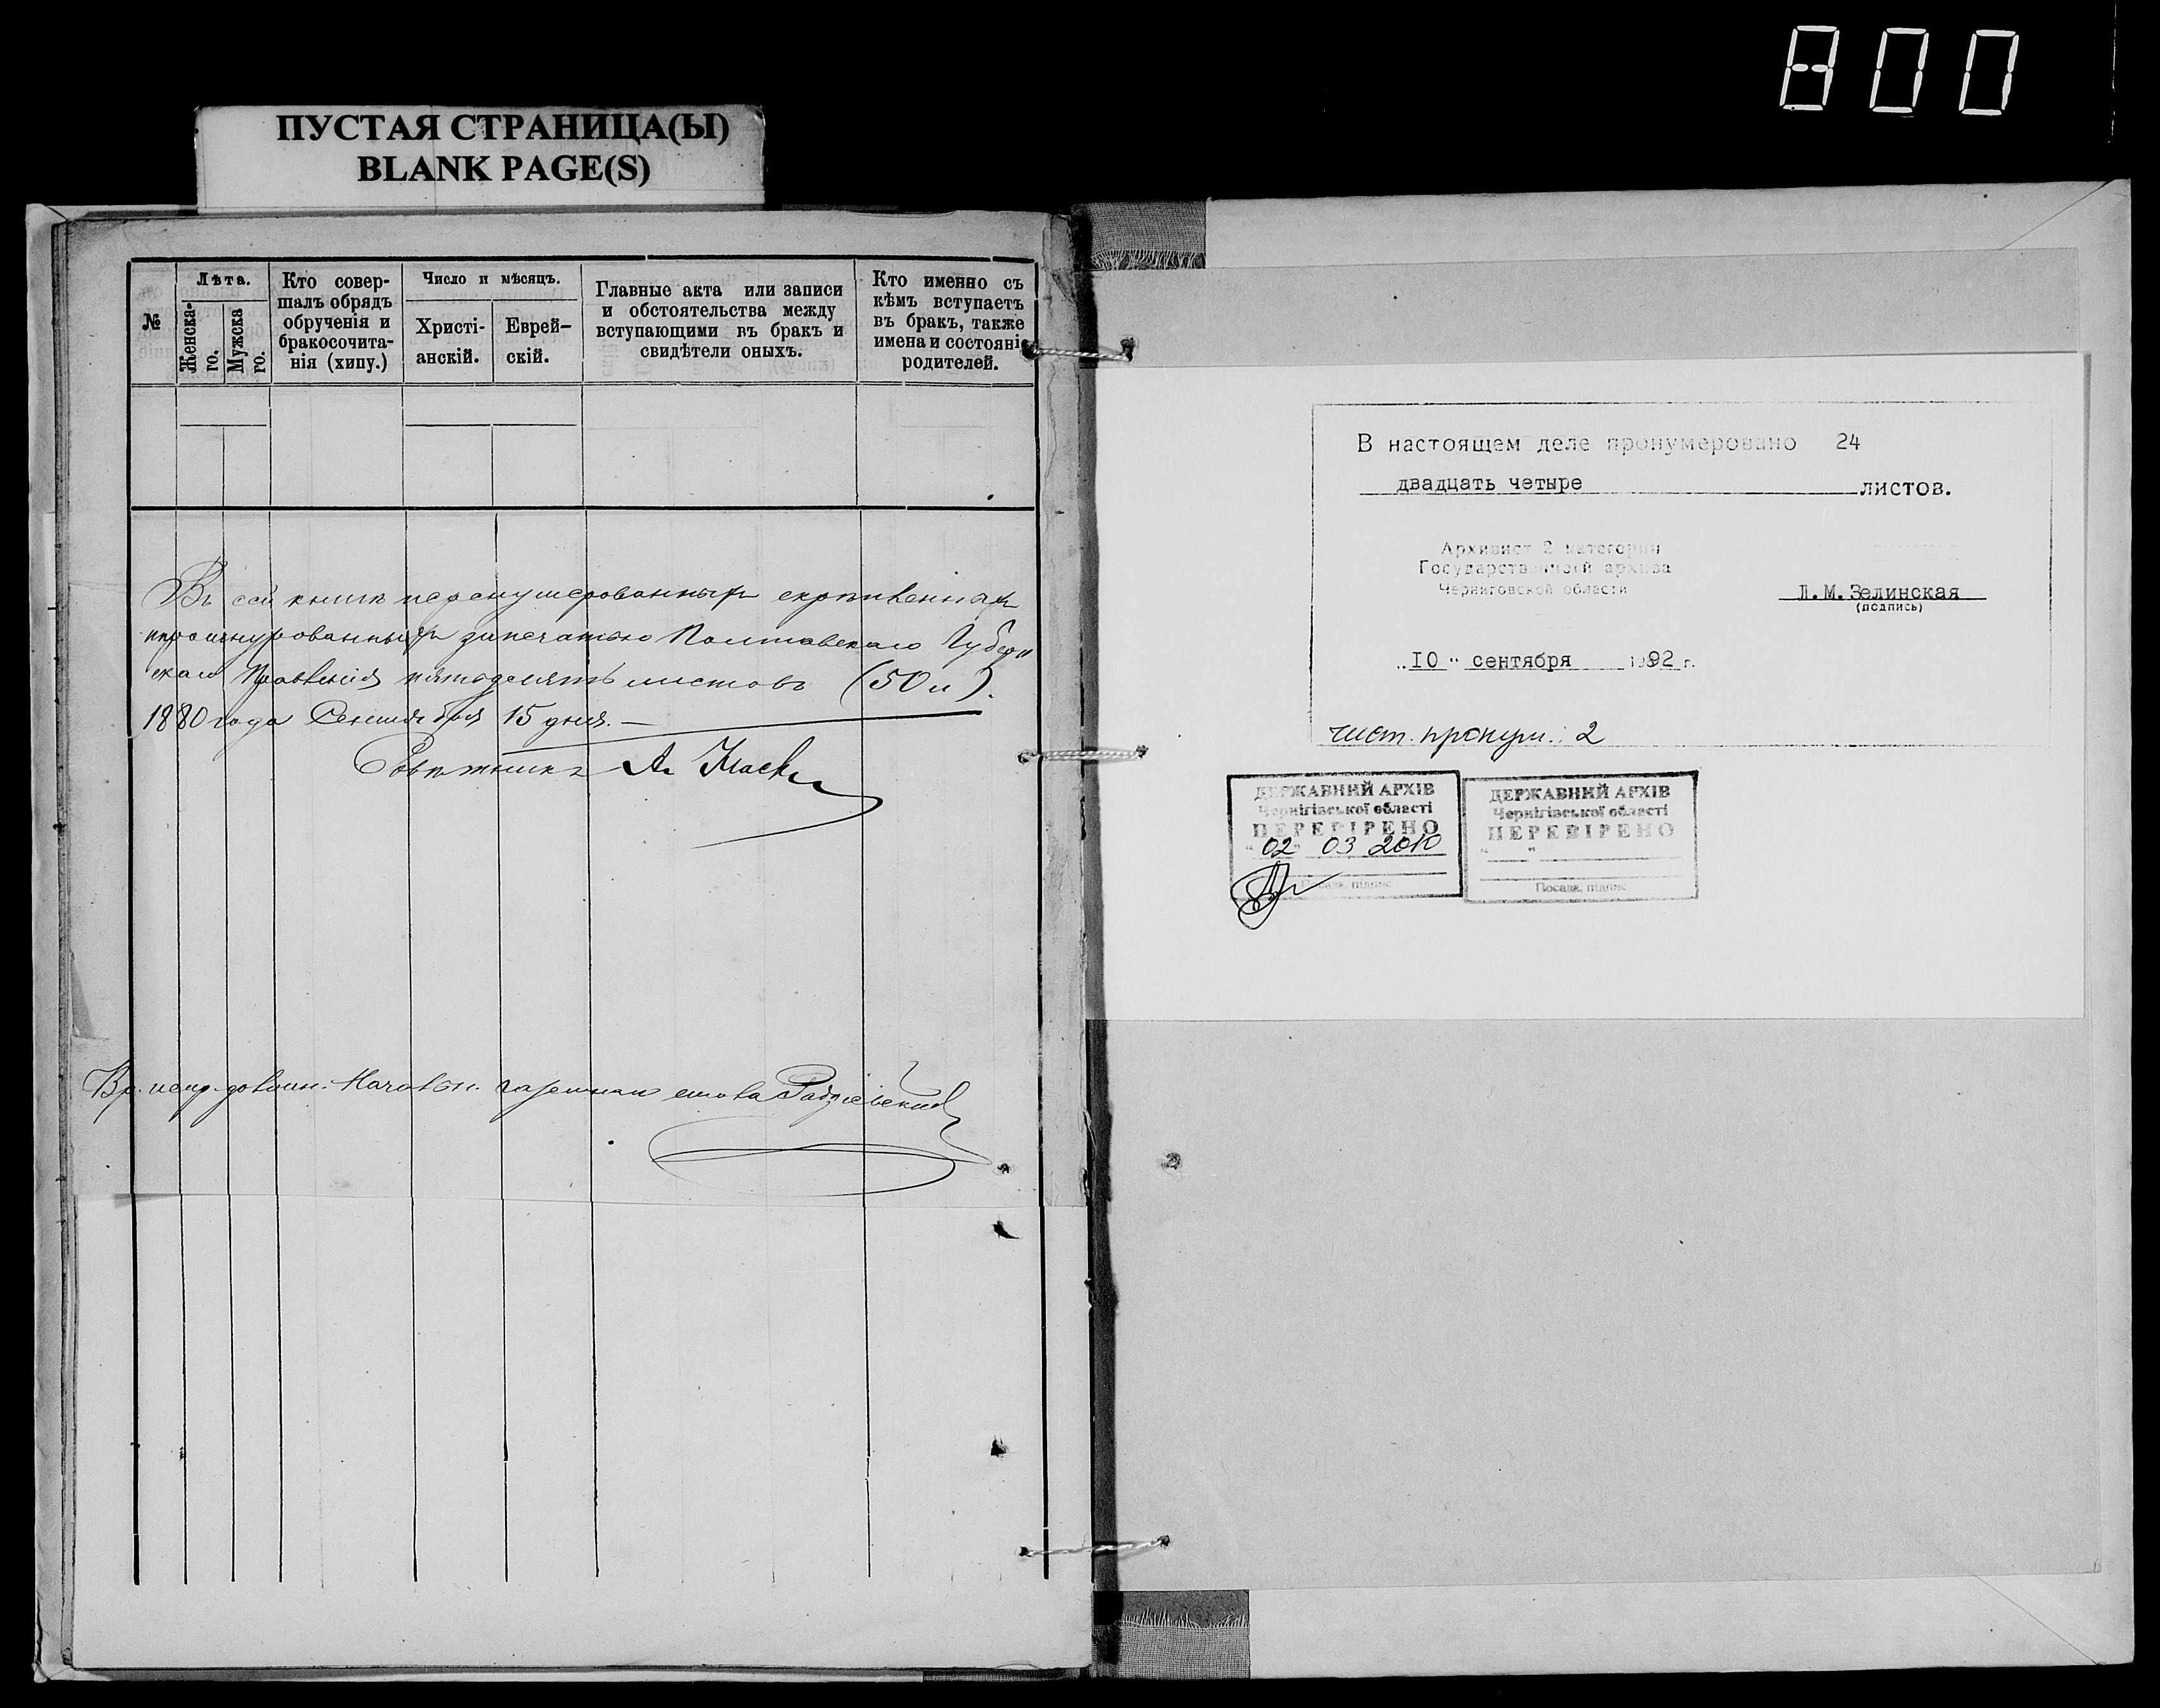 800
ПУСТАЯ СТРАНИЦА(Ы)
BLANK PAGE(S)
№
Лѣта.
Женска-
го.
Мужска
го.
Кто совер-
шалъ обрядъ
обрученія и
бракосочита-
нія (хипу.)
Число и мѣсяцъ.
Христі-
анскій.
Еврей-
скій.
Главные акта или записи
и обстоятельства между
вступающими въ бракъ и
свидѣтели оныхъ.
Кто именно съ
кѣмъ вступаетъ
въ бракъ, также
имена и состояніе
родителей.
Въ сей книгѣ перенумерованныхъ скрѣпленныхъ
прошнурованныхъ запечатью Полтавскаго Губерн
скаго Правленія пятьдесятъ листовъ (50 л).
1880 года Сентября 15 дня. —
Совѣтникъ А.
В настоящем деле пронумеровано 24
двадцать четыре листов.
Архивист 2 категории
Государственной архива
Черниговской области
Л.М.Зелинская
(подпись)
"10" сентября 1992 г.
чист. пронум.: 2
ДЕРЖАВНИЙ АРХІВ
Чернігівської області
ПЕРЕВІРЕНО
"02" 03 2010
Посада, підпис
ДЕРЖАВНИЙ АРХІВ
Чернігівської області
ПЕРЕВІРЕНО
Посада, підпис